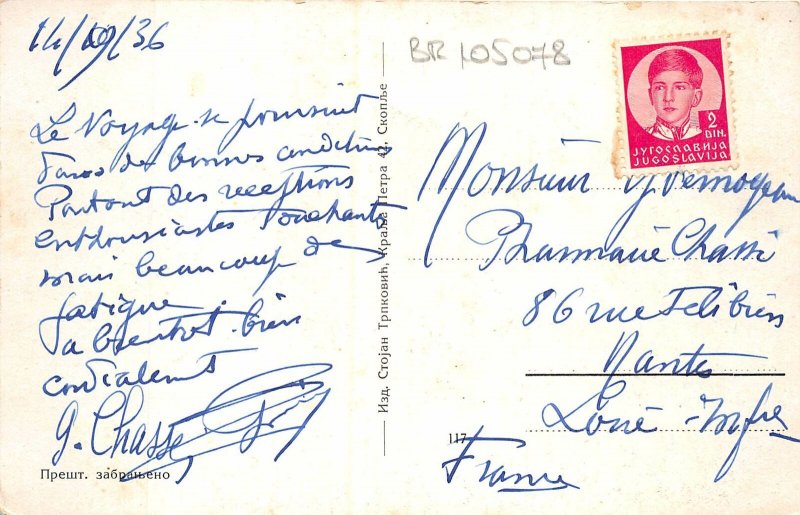 14/09/36
Le Voyage se poursuit
dans de bonnes conditions
Partout des receptions
enthousiastes touchantes
mais beaucoup de
fatigue.
a bientot. bien
cordialement
G. Chassé
Прешт. забрањено
Изд. Стојан Трпковић, Краља Петра 42, Скопље
BR 105078
2
DIN.
ЈУГОСЛАВИЈА
JUGOSLAVIJA
Monsieur
Pharmacie Chassé
86 rue Félibien
Nantes
Loire-Infre
117
France